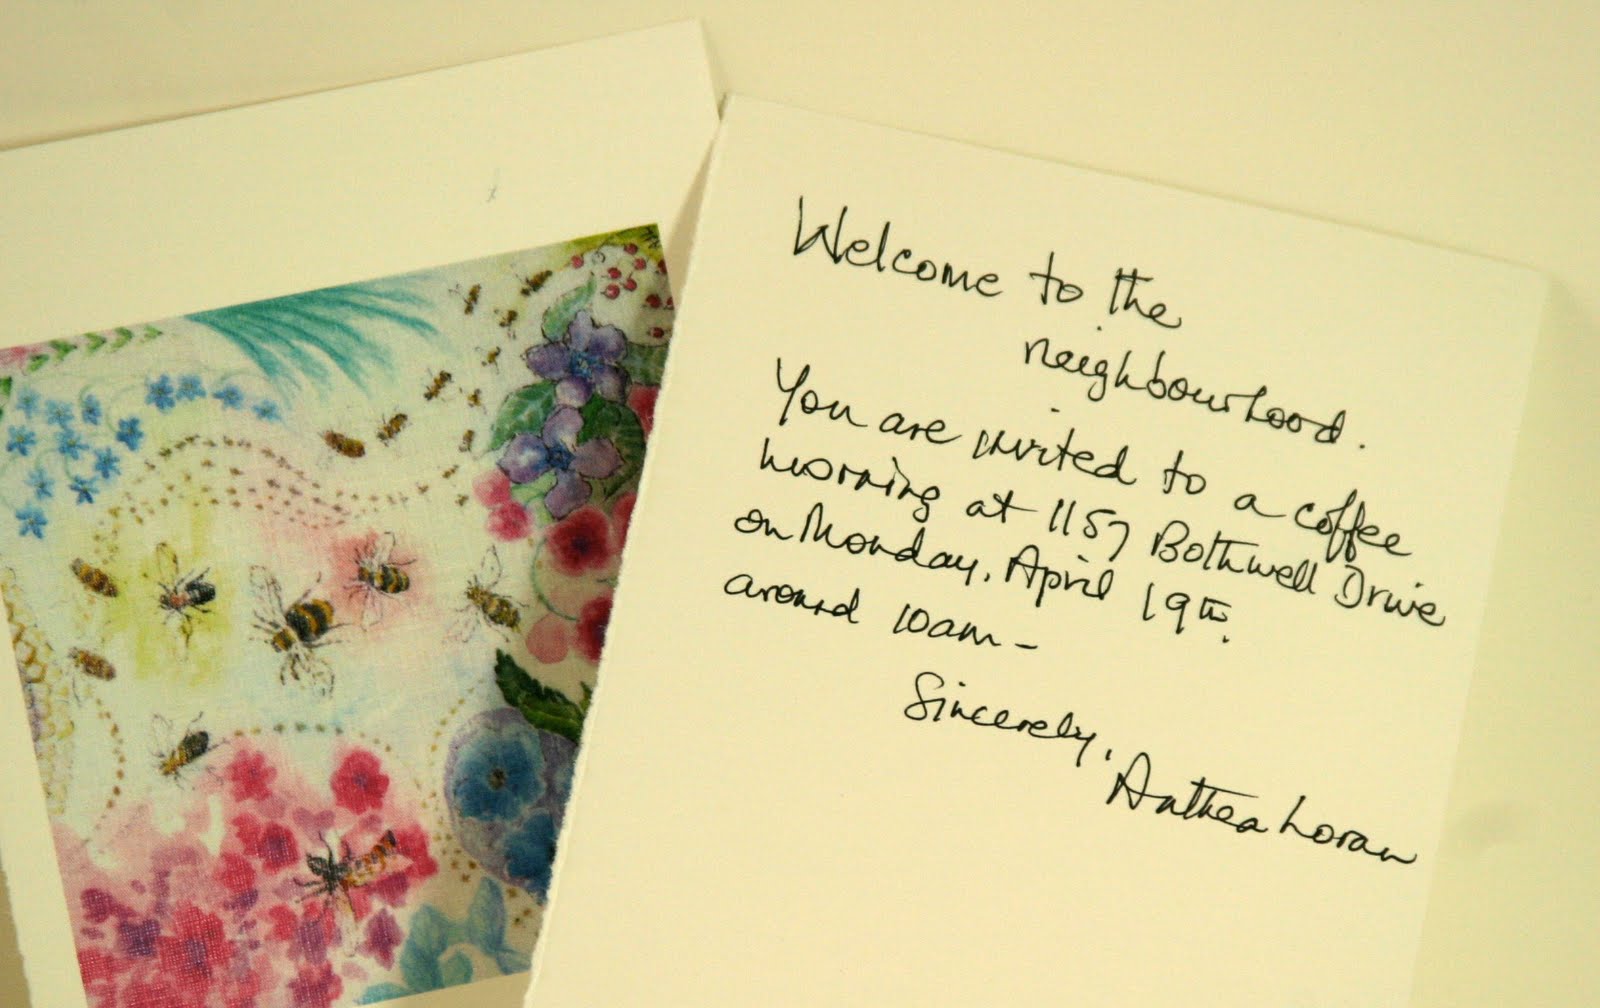 Welcome to the
neighbourhood.
You are invited to a coffee
morning at 1157 Bothwell Drive
on Monday, April 19th.
around 10am –
Sincerely,
Anthea Loran